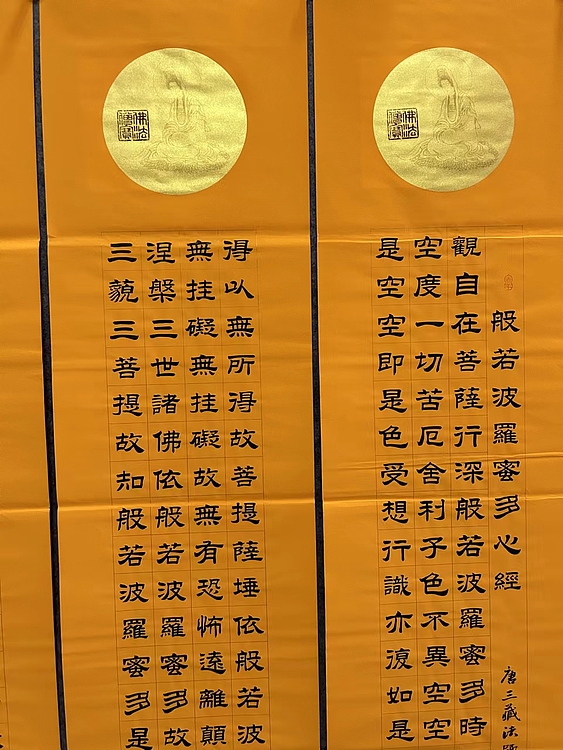 佛法
般若波羅蜜多心經
唐三藏法
觀自在菩薩行深般若波羅蜜多時
空度一切苦厄舍利子色不異空空
是空空即是色受想行識亦復如是
佛法
得以無所得故菩提薩埵依般若波
無挂礙無挂礙故無有恐怖遠離顛
涅槃三世諸佛依般若波羅蜜多故
三藐三菩提故知般若波羅蜜多是